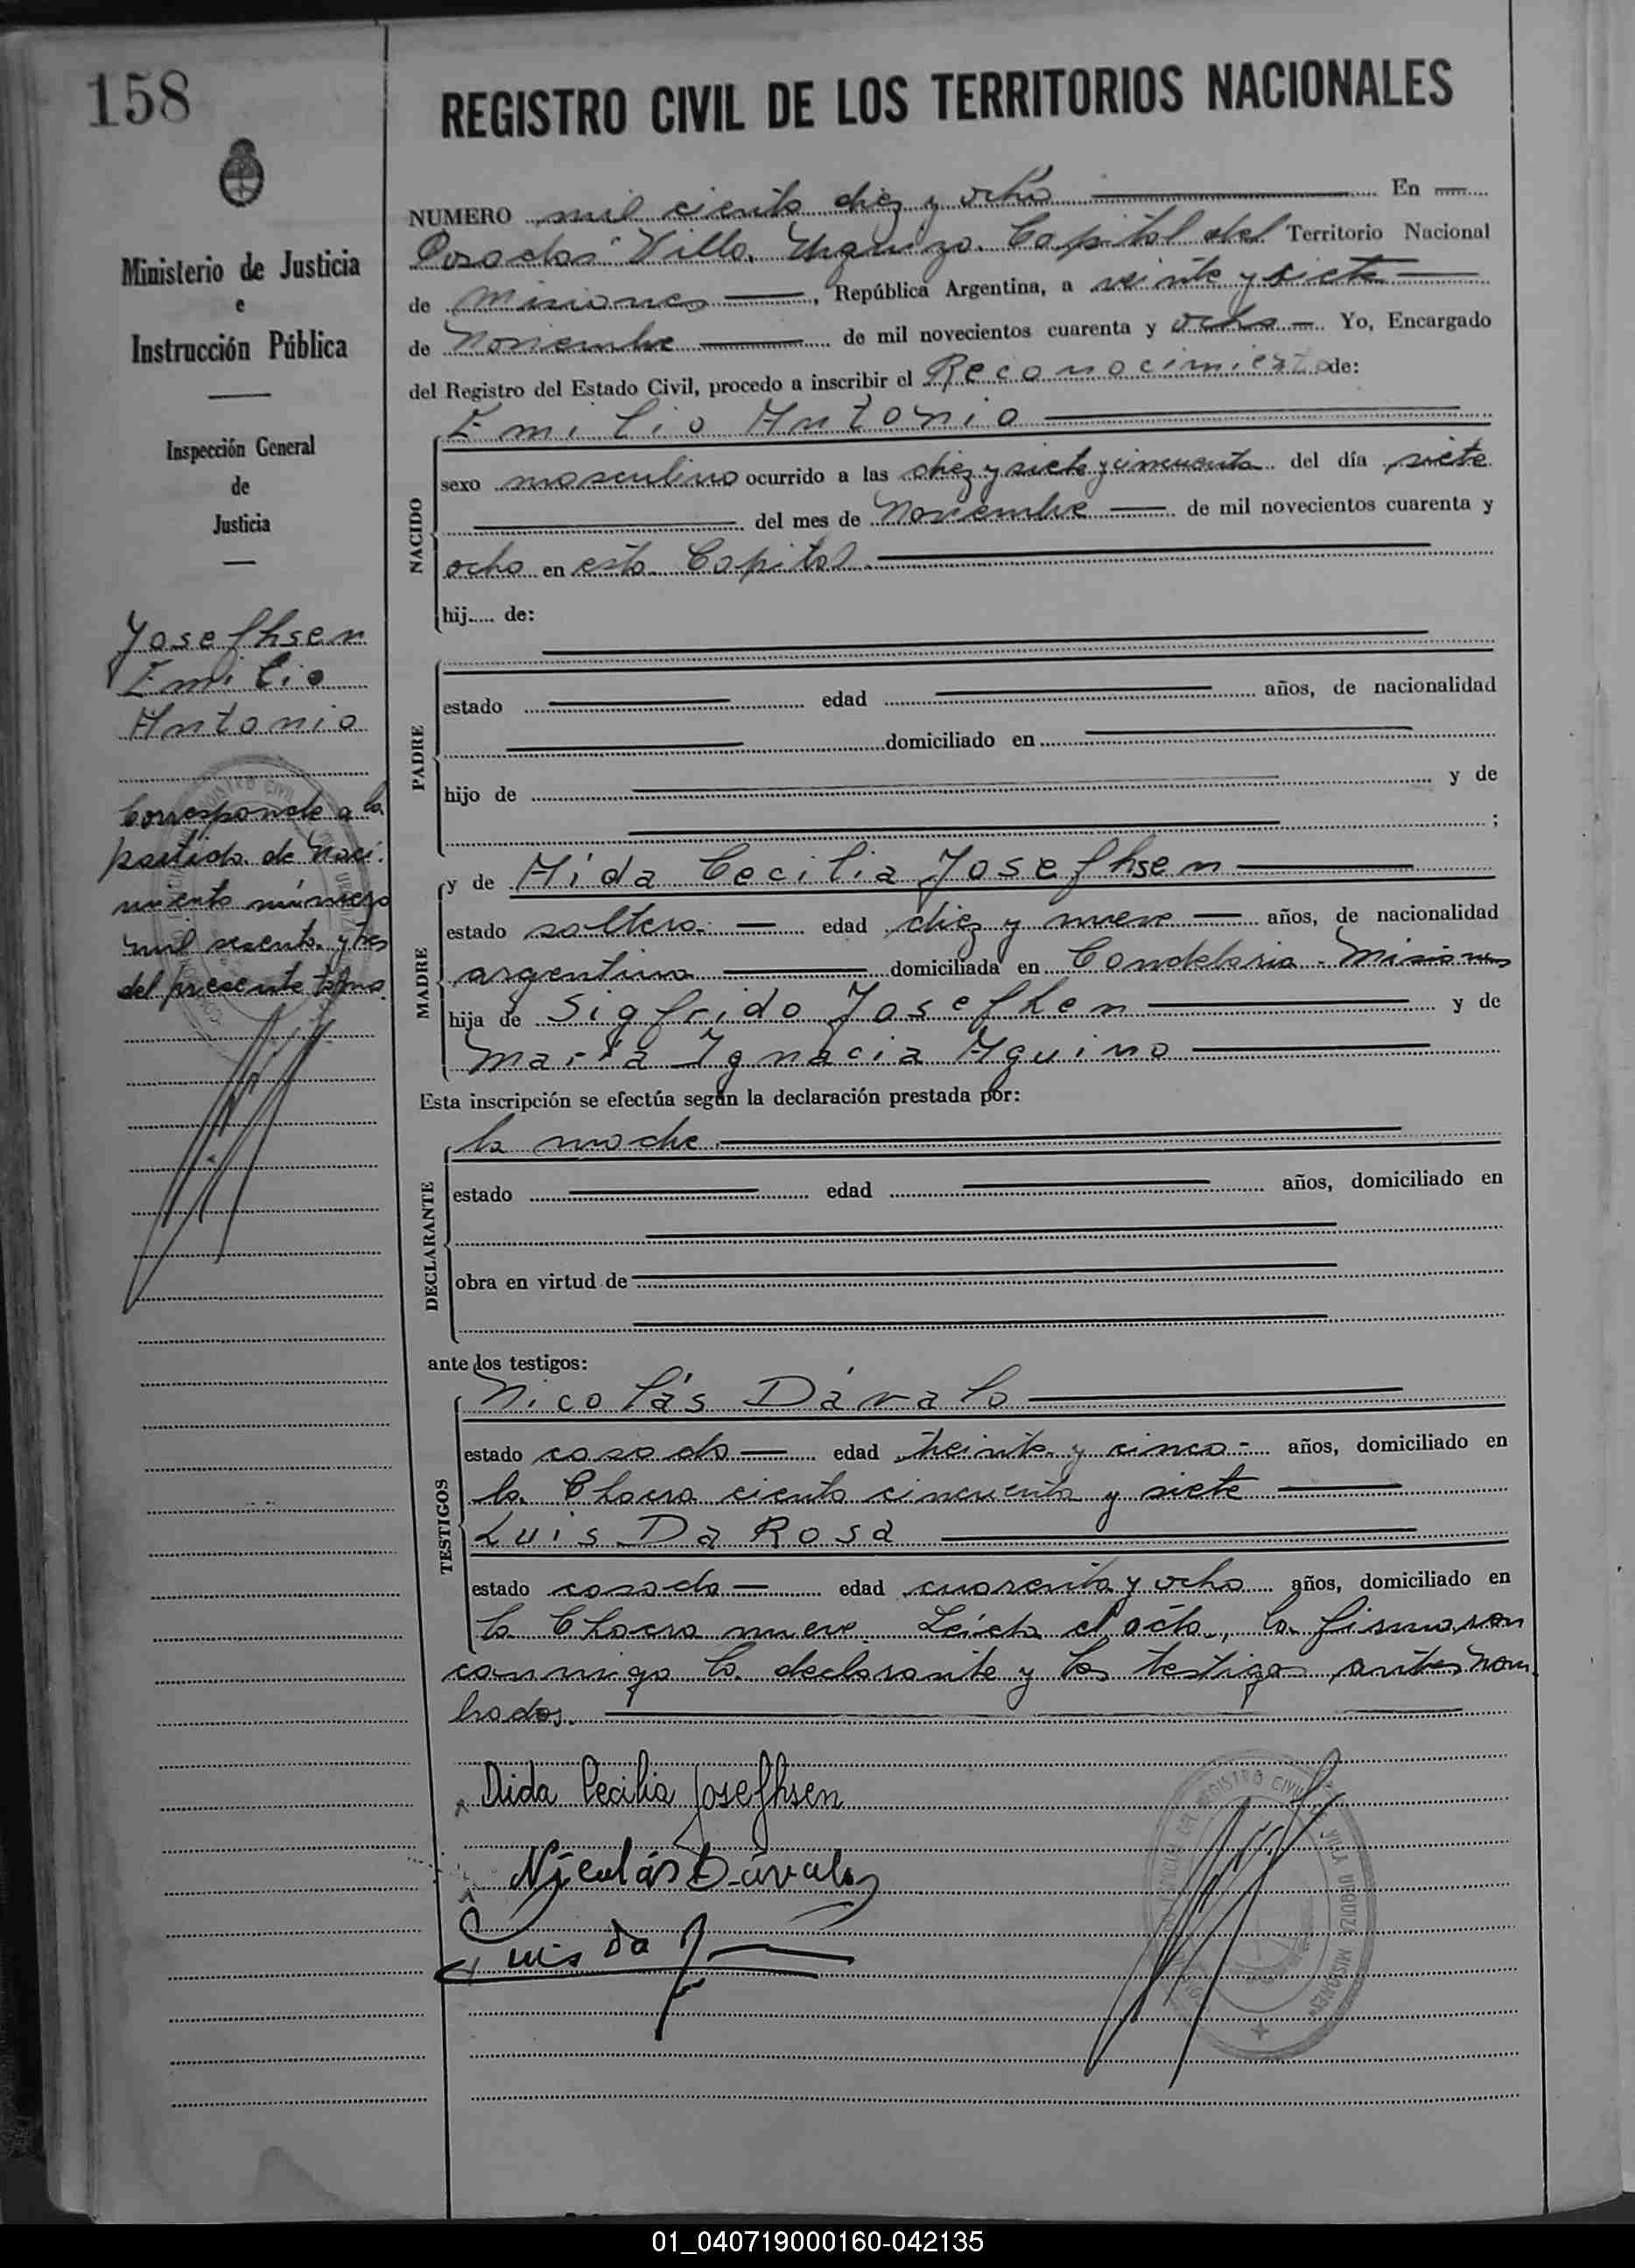 158
REGISTRO CIVIL DE LOS TERRITORIOS NACIONALES
Ministerio de Justicia
e
Instrucción Pública
Inspección General
de
Justicia
Josefhsen
Emilio
Antonio
Corresponde a la
partida de Naci-
miento número
mil sesenta y tres
del presente tomo.
NUMERO mil ciento diez y ocho En
Posadas Villa Urquiza Capital del Territorio Nacional
de Misiones, República Argentina, a veinte y siete
de Noviembre de mil novecientos cuarenta y ocho Yo, Encargado
del Registro del Estado Civil, procedo a inscribir el Reconocimiento de:
NACIDO
Emilio Antonio
sexo masculino ocurrido a las diez y siete y cincuenta del día siete
del mes de Noviembre de mil novecientos cuarenta y
ocho en esta Capital
hij..... de:
PADRE
estado edad años, de nacionalidad
domiciliado en
hijo de y de
;
MADRE
y de Aída Cecilia Josefhsen
estado soltera edad diez y nueve años, de nacionalidad
argentina domiciliada en Candelaria - Misiones
hija de Sigfrido Josefhen y de
María Ignacia Aquino
Esta inscripción se efectúa según la declaración prestada por:
DECLARANTE
la madre
estado edad años, domiciliado en
obra en virtud de
ante los testigos:
TESTIGOS
Nicolás Dávalo
estado casado edad treinta y cinco años, domiciliado en
la Chacra ciento cincuenta y siete
Luis Da Rosa
estado casado edad cuarenta y ocho años, domiciliado en
la Chacra nueve. Leída el acta, la firmaron
conmigo la declarante y los testigos antes nom
brados.
Aida Cecilia Josefhsen
Nicolás Dávalos
Luis da
REGISTRO CIVIL VILLA URQUIZA MISIONES
01_040719000160-042135